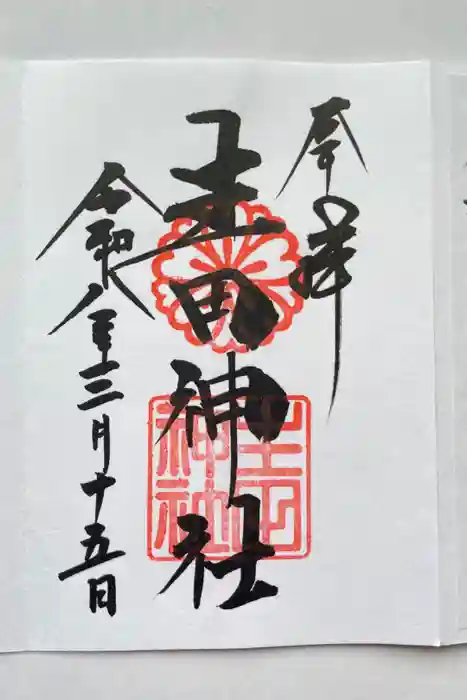 奉拝
生田神社
令和八年三月十五日
生田
神社